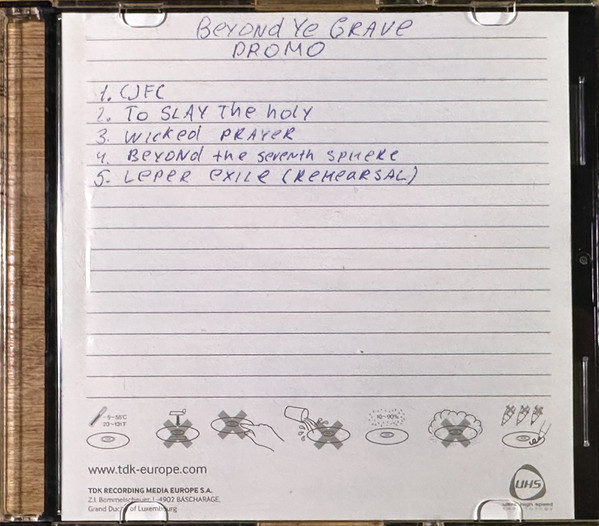 Beyond Ye Grave
PROMO
1. CJFC
2. To SLAY The holy
3. Wicked PRAYER
4. Beyond the seventh sphere
5. Leper exile (Rehearsal)
-5~55°C
23~131°F
10~90%
www.tdk-europe.com
TDK RECORDING MEDIA EUROPE S.A.
Z.I. Bommelscheuer L-4902 BASCHARAGE,
Grand Duchy of Luxembourg
UHS
ultra high speed